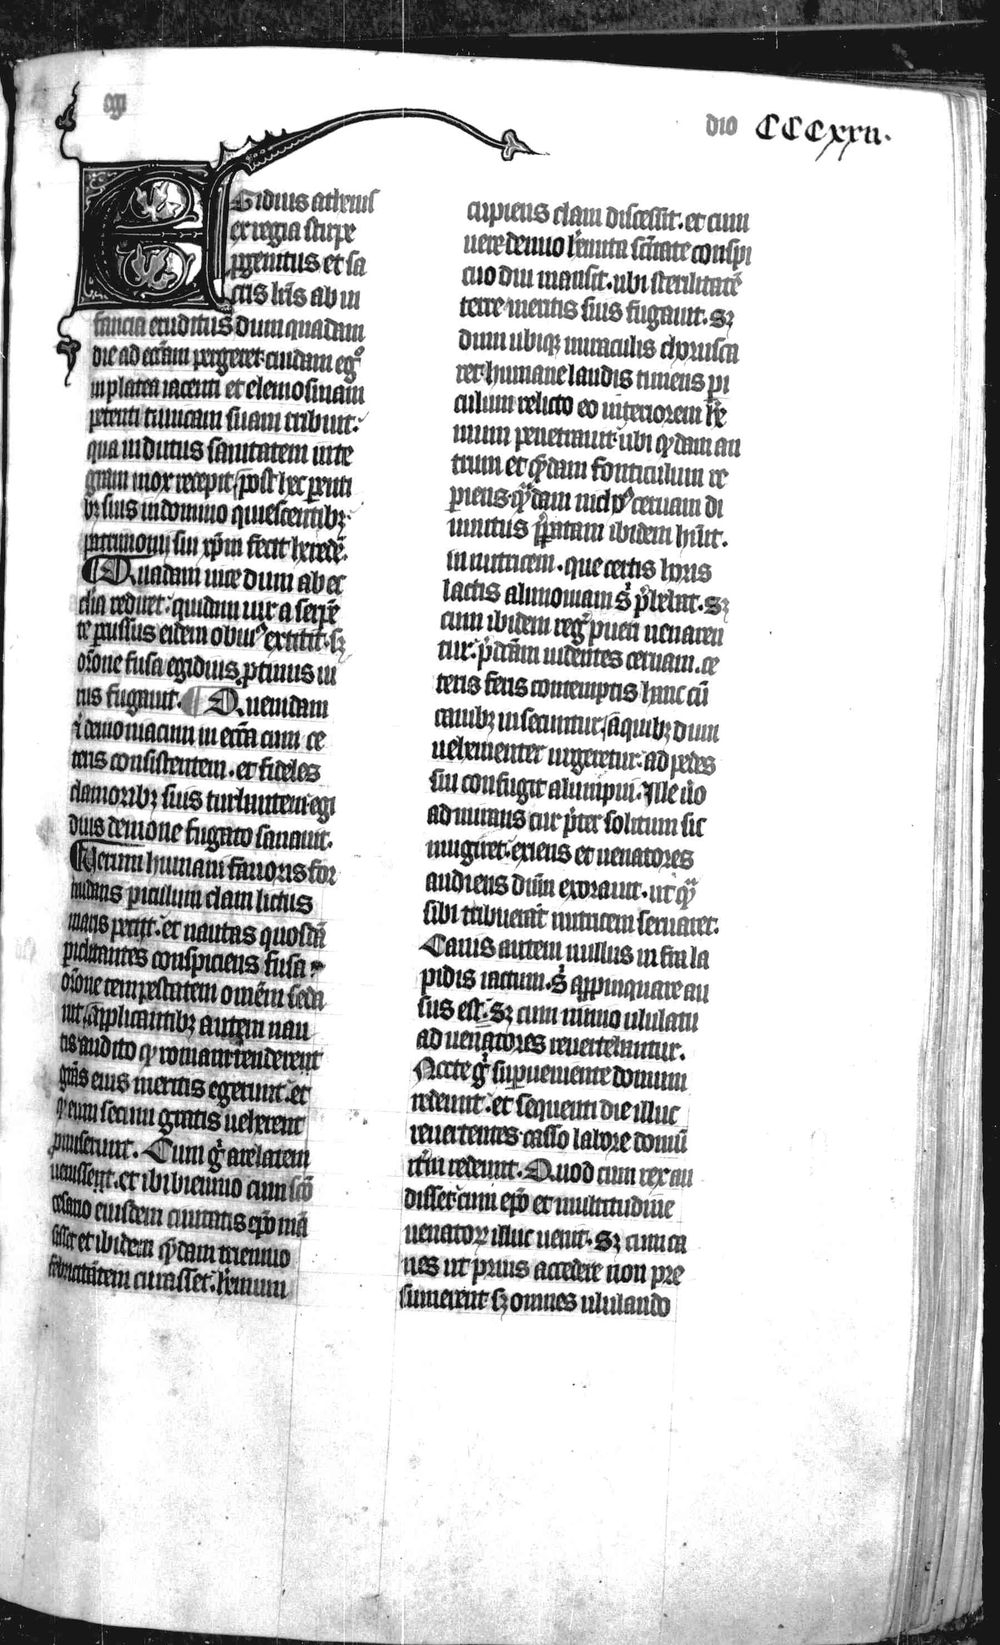 egi
dio CCCxxii.
Egidius athenis
ex regia stirpe
ꝓgenitus et sa
cris lr̅is ab in
fancia eruditus dum quadam
die ad ecc̅am pergeret cuidam eg͛o
in platea iacenti et elemosinam
petenti tunicam suam tribuit.
qua indutus sanitatem inte
gram mox recepit/post hec ꝑenti
bꝫ suis in domino quiescentibꝫ
patrimonii sui xp̅m fecit herede̅.
¶ Quadam uice dum ab ec
cl̅ia rediret. quidam uir a serpe̅
te ꝑcussus eidem obuiꝰ extitit. sꝫ
or̅one fusa egidius ꝓtinus ui
rus fugauit. ¶ Quemdam
demoniacum in ecc̅a cum ce
teris consistentem. et fideles
clamoribꝫ suis turbantem egi
dius demone fugato sanauit.
Verum humani fauoris for
midans piculum clam litus
maris petijt. et nautas quosda̅
ꝑiclitantes conspiciens fusa
or̅one tempestatem om̅em seda
uit. applicantibꝫ autem nau
tis audito ꝙ romam tenderent
gr̅as eius meritis egerunt. et
ꝙ eum secum gratis ueherent
ꝓmiserunt. Cum g̊ arelatem
uenissent. et ibi biennio cum sc̅o
cesario eiusdem ciuitatis ep̅o ma̅
sisset et ibidem q̅dam triennio
febricita̅tem curasset. h̅emum
cupiens clam discessit. et cum
uere demio h̅emita sc̅itate conspi
cuo diu mansit. ubi sterilitate̅
terre meritis suis fugauit. sꝫ
dum ubiqꝫ miraculis chorusca
ret humane laudis timens pi
culum relicto eo interiorem h̅e
mum penetrauit ubi q̅dam an
trum et q̅dam fonticulum re
piens q̅dam nichꝰ ceruam di
uinitus p̅patam ibidem h̅uit.
in nutricem. que certis horis
lactis alimoniam s̅ p̅bebat. sꝫ
cum ibidem reg̅ pueri uenaren
tur. p̅dc̅am uidentes ceruam. ce
teris feris contemptis hanc cu̅
canibꝫ insecuntur/a quibꝫ dum
uehementer urgeretur. ad pedes
sui confugit alumpni. Ille u̅o
admirans cur p̅ter solitum sic
mugiret. exiens et uenatores
audiens dn̅m exorauit. ut q̅
sibi tribuerat nutricem seruaret.
Canis autem nullus infra la
pidis iactum. s̅ appinquare au
sus est. sꝫ cum nimio ululatu
ad uenatores reuertebantur.
Nocte g̊ suꝑueniente domum
redeunt. et sequenti die illuc
reuertentes casso labore domu̅
it̅m redeunt. Quod cum rex au
disset. cum ep̅o et multitudine
uenatoꝝ illuc uenit. sꝫ cum ca
nes ut prius accedere non pre
sumerent sꝫ omnes ululando